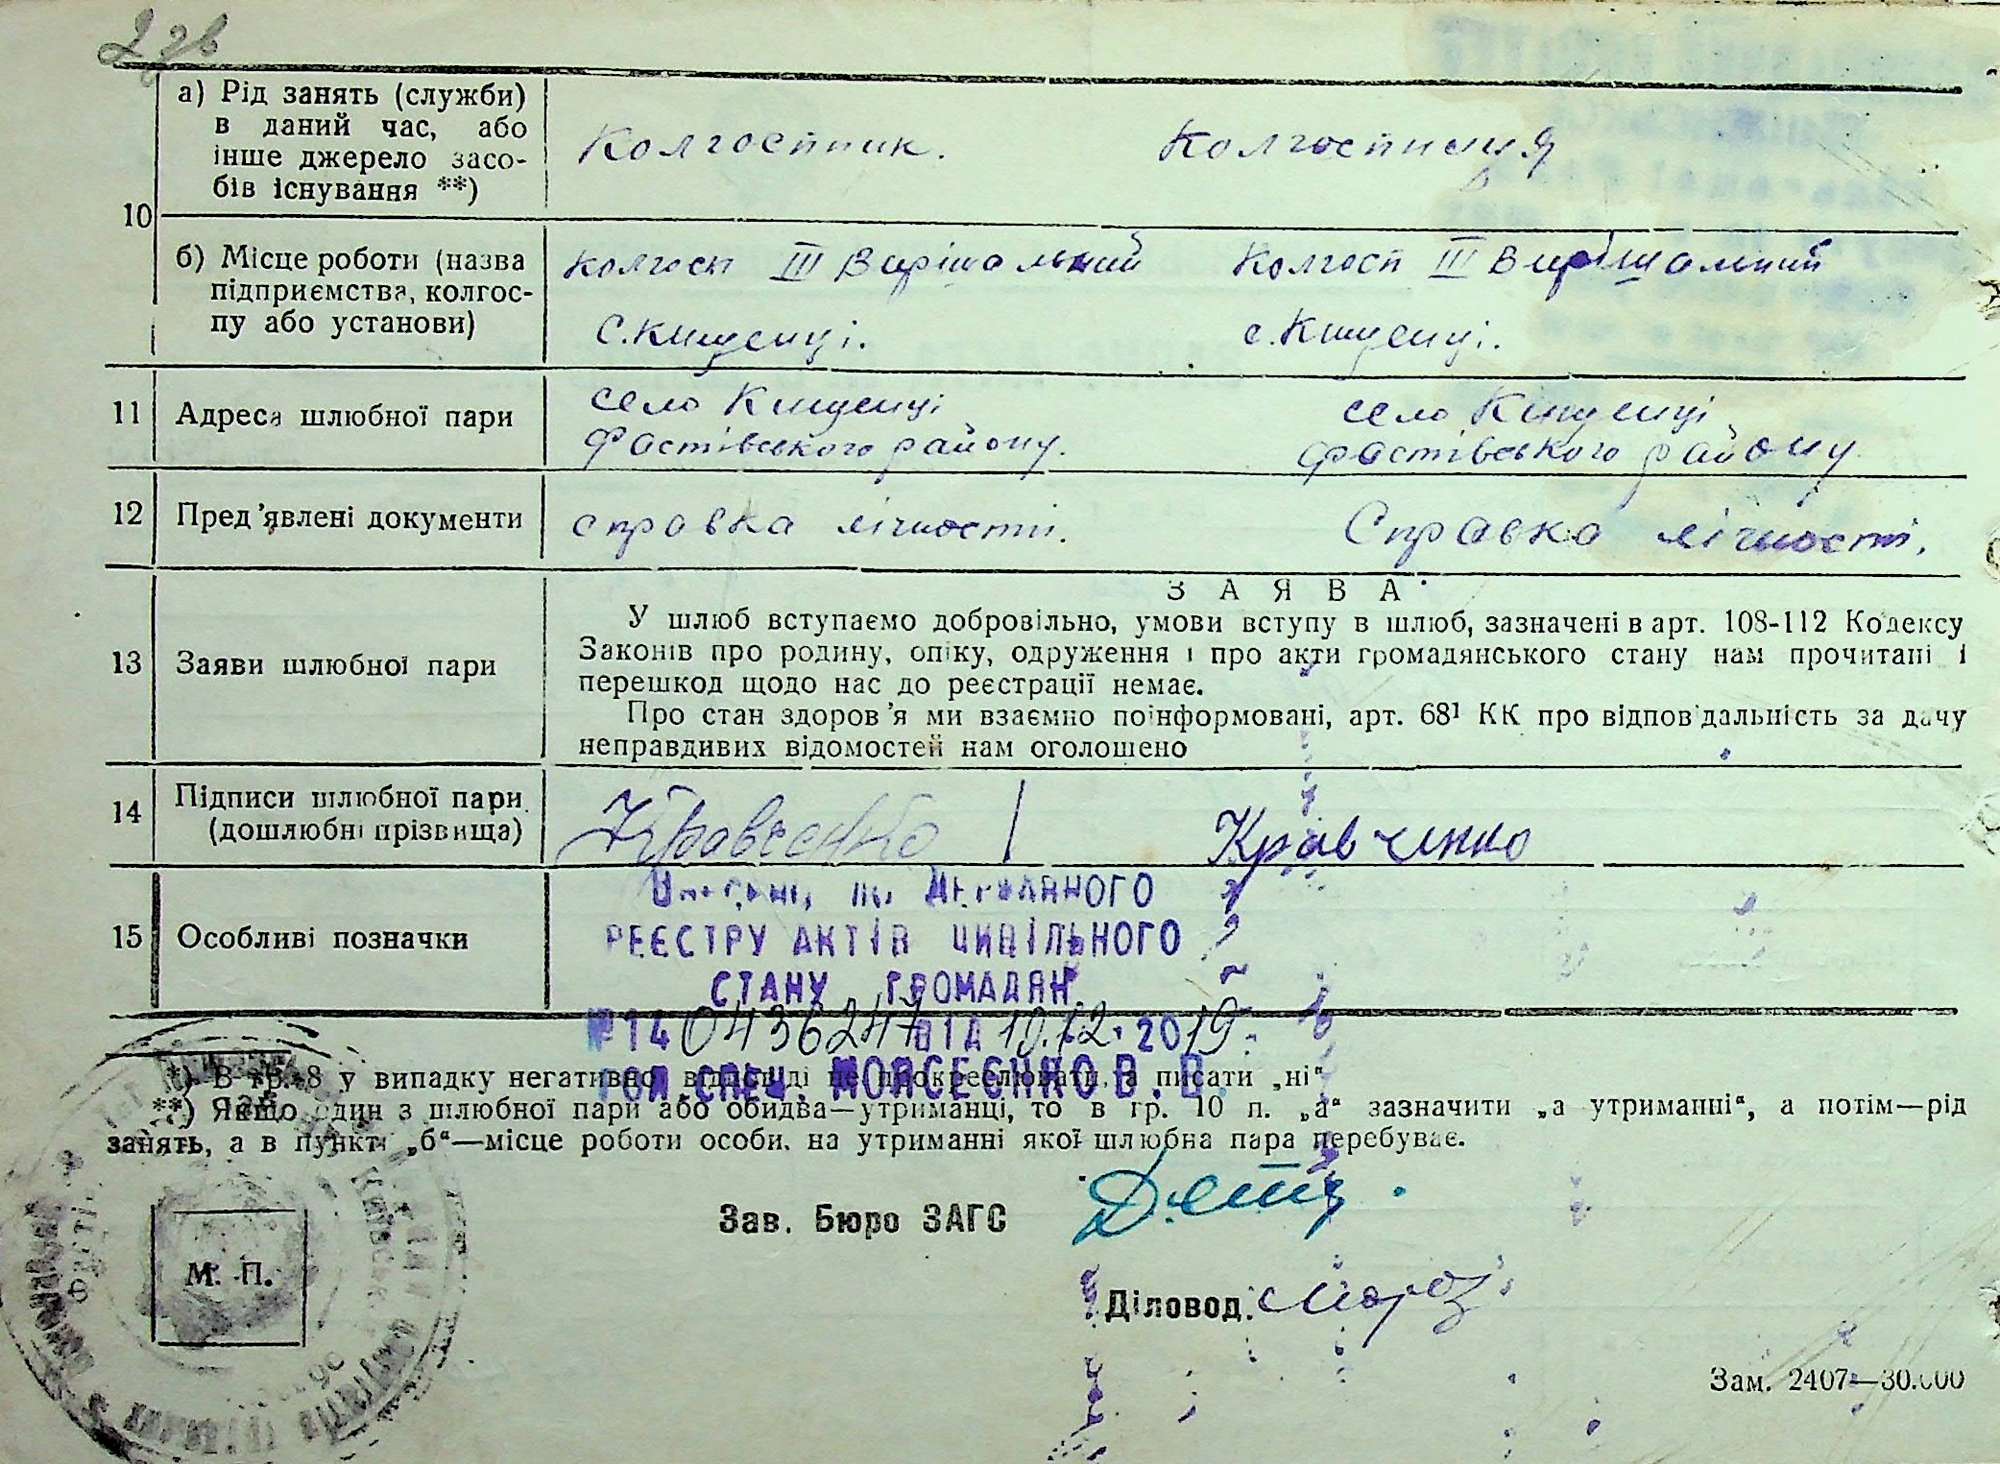 2зв
а) Рід занять (служби) в даний час, або інше джерело засобів існування **)
Колгоспник. Колгоспниця
10
б) Місце роботи (назва підприємства, колгоспу або установи)
Колгосп III Вирішальний Колгосп III Вирішальний
с. Кищенці. с. Кищенці.
11 Адреса шлюбної пари
село Кищенці село Кищенці
Фастівського району. Фастівського району.
12 Пред'явлені документи справка лічності. Справка лічності.
ЗАЯВА
13 Заяви шлюбної пари
У шлюб вступаємо добровільно, умови вступу в шлюб, зазначені в арт. 108-112 Кодексу
Законів про родину, опіку, одруження і про акти громадянського стану нам прочитані і
перешкод щодо нас до реєстрації немає.
Про стан здоров'я ми взаємно поінформовані, арт. 68¹ КК про відповідальність за дачу
неправдивих відомостей нам оголошено
14 Підписи шлюбної пари (дошлюбні прізвища)
Кравченко Кравченко
15 Особливі позначки
Державного
РЕЄСТРУ АКТІВ ЦИВІЛЬНОГО
СТАНУ ГРОМАДЯН
№14 0436247 ВІД 10.12.2019
ГОЛ.СПЕЦ. МОЙСЕЄНКО В.В.
*) В гр. 8 у випадку негативної відповіді не прокреслювати, а писати „ні“
**) Якщо один з шлюбної пари або обидва—утриманці, то в гр. 10 п. „а“ зазначити „а утриманні“, а потім—рід
занять, а в пункті „б“—місце роботи особи, на утриманні якої шлюбна пара перебуває.
Зав. Бюро ЗАГС
М. П.
Діловод. Мороз
Зам. 2407—30.000